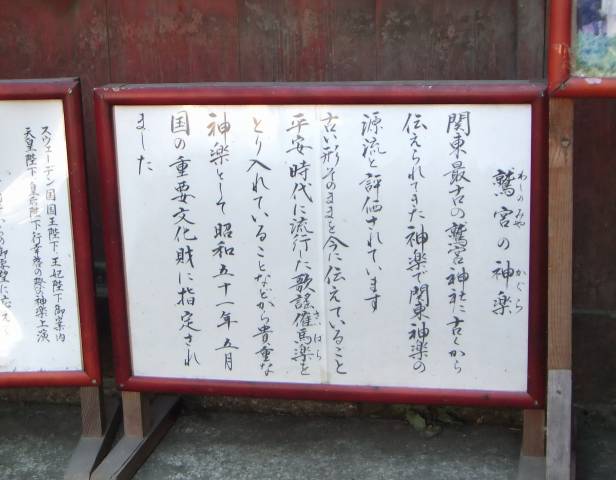 わしのみや かぐら
鷲宮の神楽
関東最古の鷲宮神社に古くから
伝えられてきた神楽で関東神楽の
源流と評価されています
古い形そのままを今に伝えていること
平安時代に流行した歌謡催馬楽を
とり入れていることなどから貴重な
神楽として昭和五十一年五月
国の重要文化財に指定され
ました
スウェーデン国国王陛下 王妃陛下 御案内
天皇陛下 皇后陛下 行幸啓の際の神楽上演